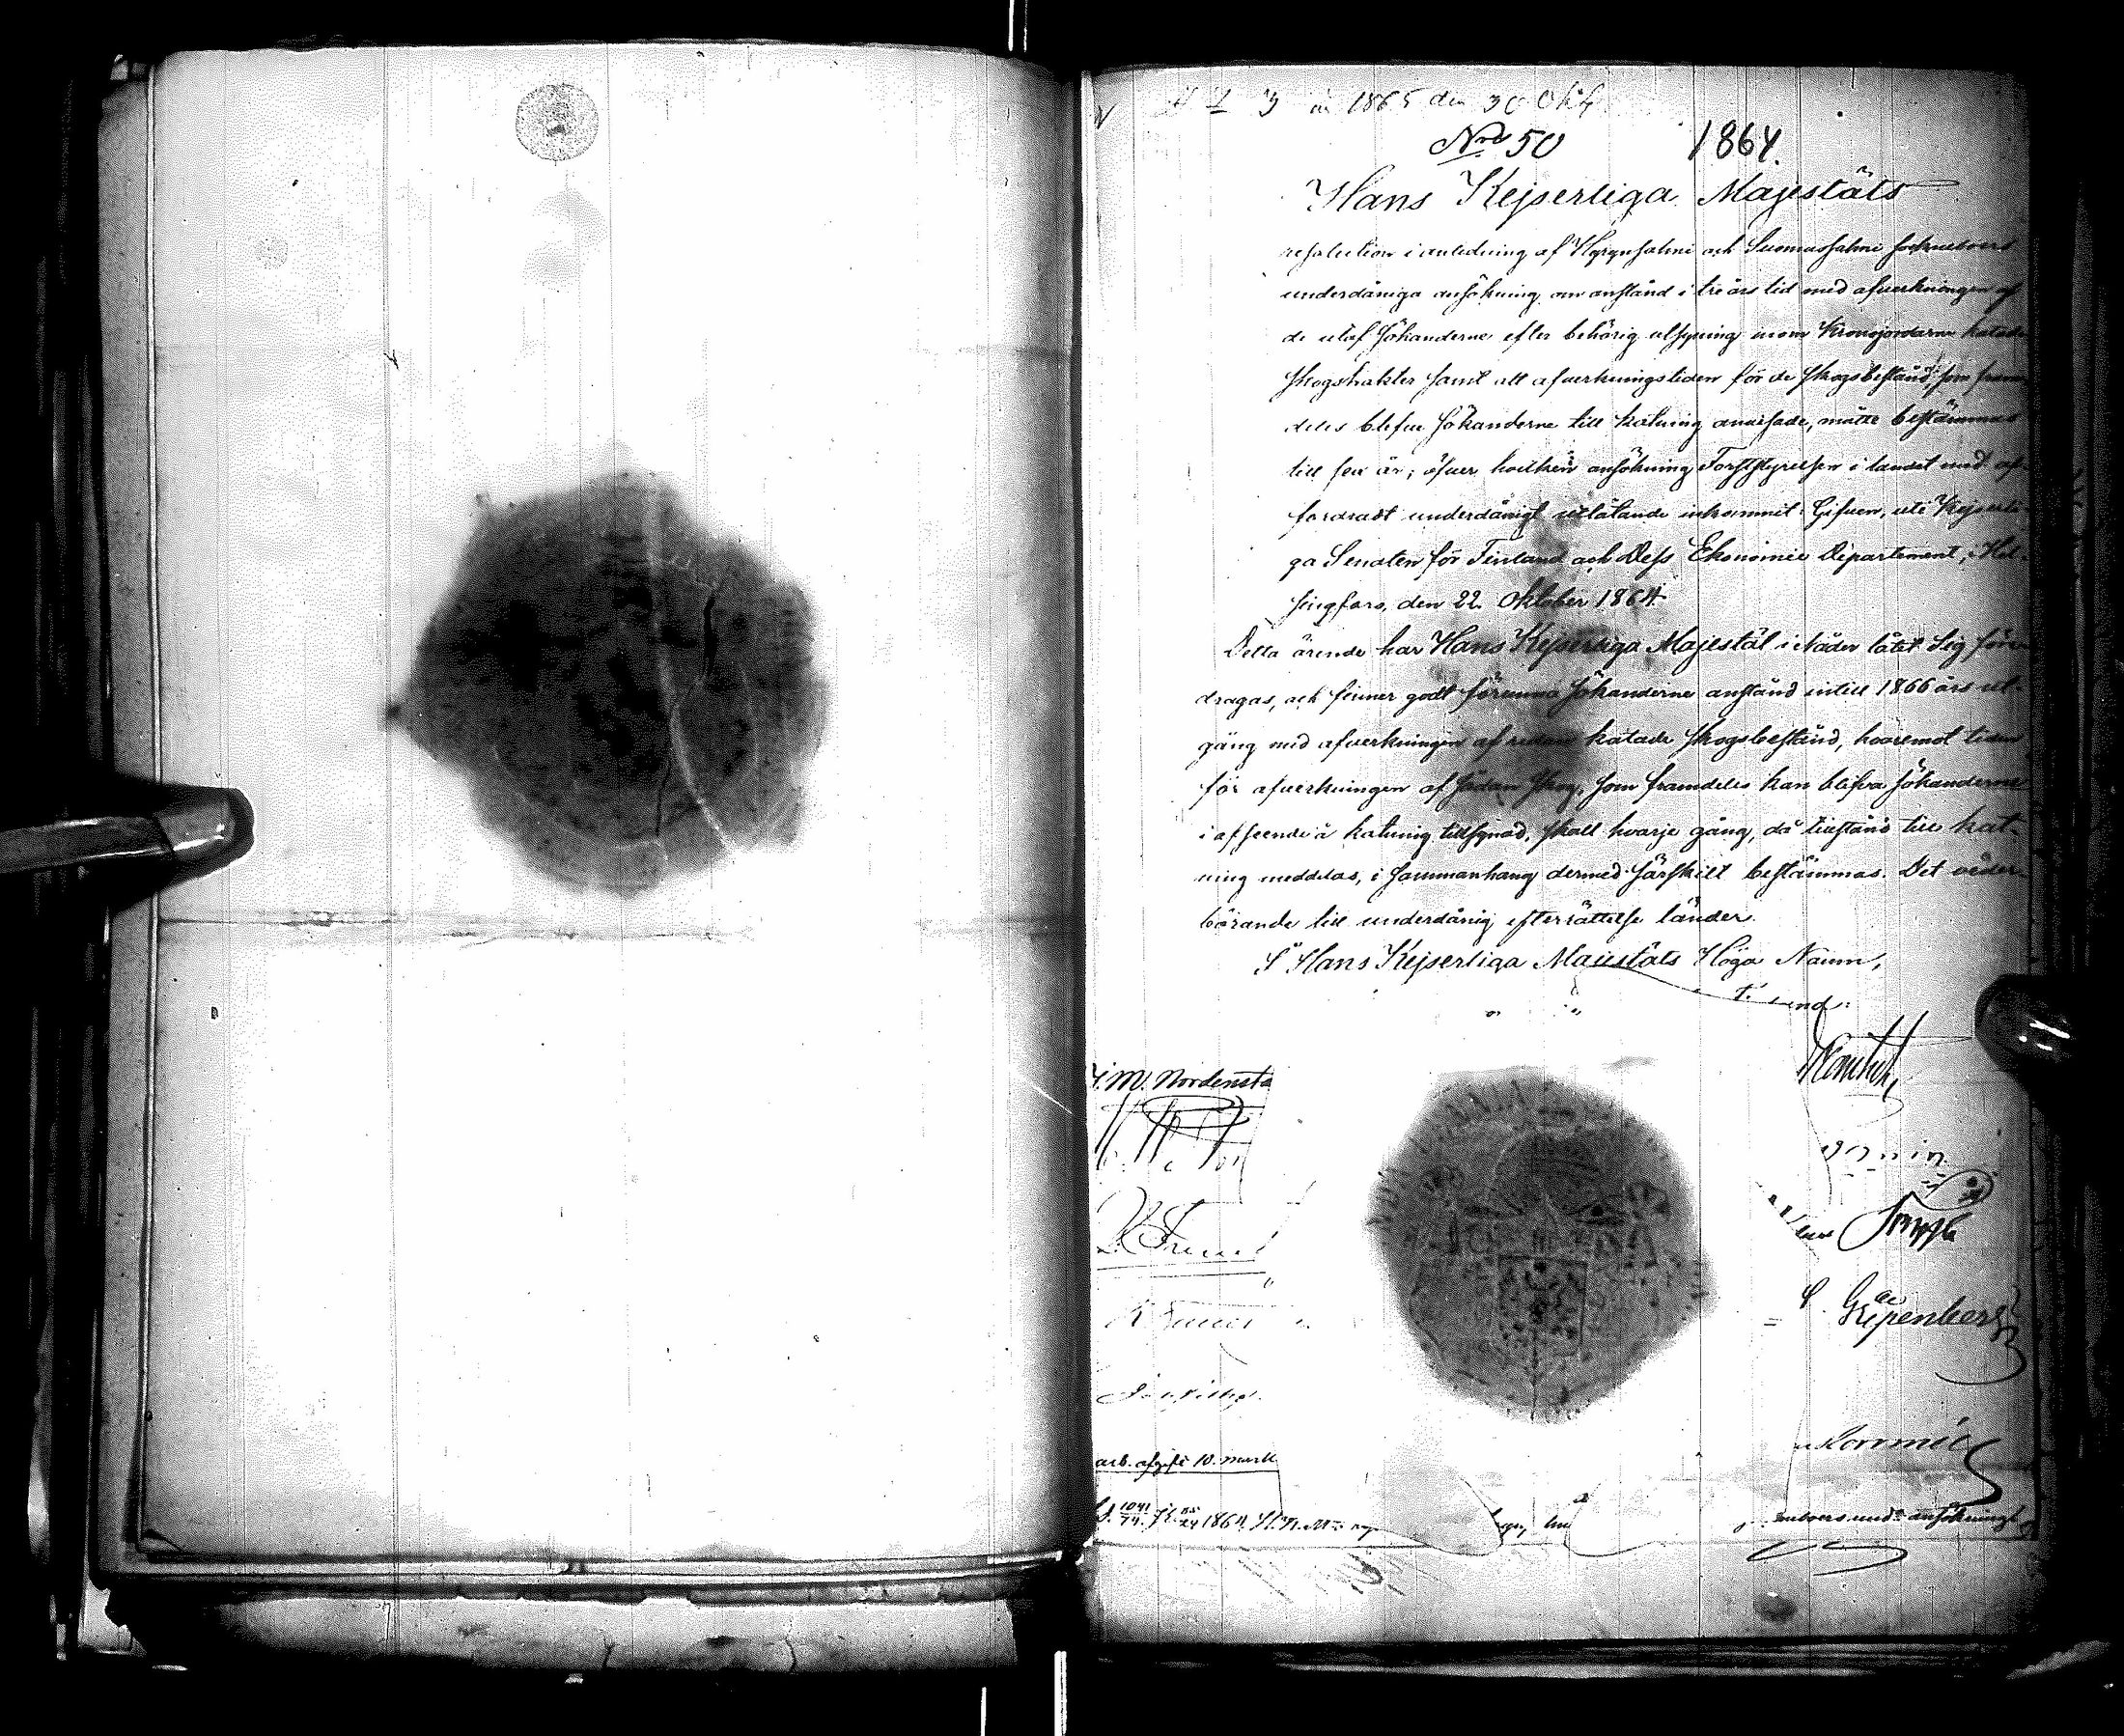 1865 den 30 Okt
No 50 1864.
Hans Kejserliga Majestäts
resolution i anledning af Hyrynsalmi och Suomussalmi sockneboers
underdåniga ansökning om anstånd i tre års tid med afverkningen af
de utaf Sökanderne efter behörig utsyning inom Kronojordarne katade
skogstrakter samt att afverkningstiden för de skogsbestånd, som fram-
deles blefve Sökanderne till katning anvisade, måtte bestämmas
till sex år; öfver hvilken ansökning Forststyrelsen i landet med af-
fordradt underdånigt utlåtande inkommit. Gifven, uti Kejserli-
ga Senaten för Finland och Dess Ekonomie Departement, i Hel-
singfors, den 22 Oktober 1864.
Detta ärende har Hans Kejserliga Majestät i Nåder låtit Sig före-
dragas, och finner godt förunna Sökanderne anstånd intill 1866 års ut-
gång med afverkningen af redan katade skogsbestånd, hvaremot tiden
för afverkningen af sådan skog, som framdeles kan blifva Sökanderne
i afseende å katning tillsynad, skall hvarje gång, då tillstånd till kat-
ning meddelas, i sammanhang dermed särskilt bestämmas. Det veder-
börande till underdånig efterrättelse länder.
I Hans Kejserliga Majestäts Höga Namn,
J. M. Nordenstam
S. Gripenberg
afgift 10. mark
1864
underd. ansökning